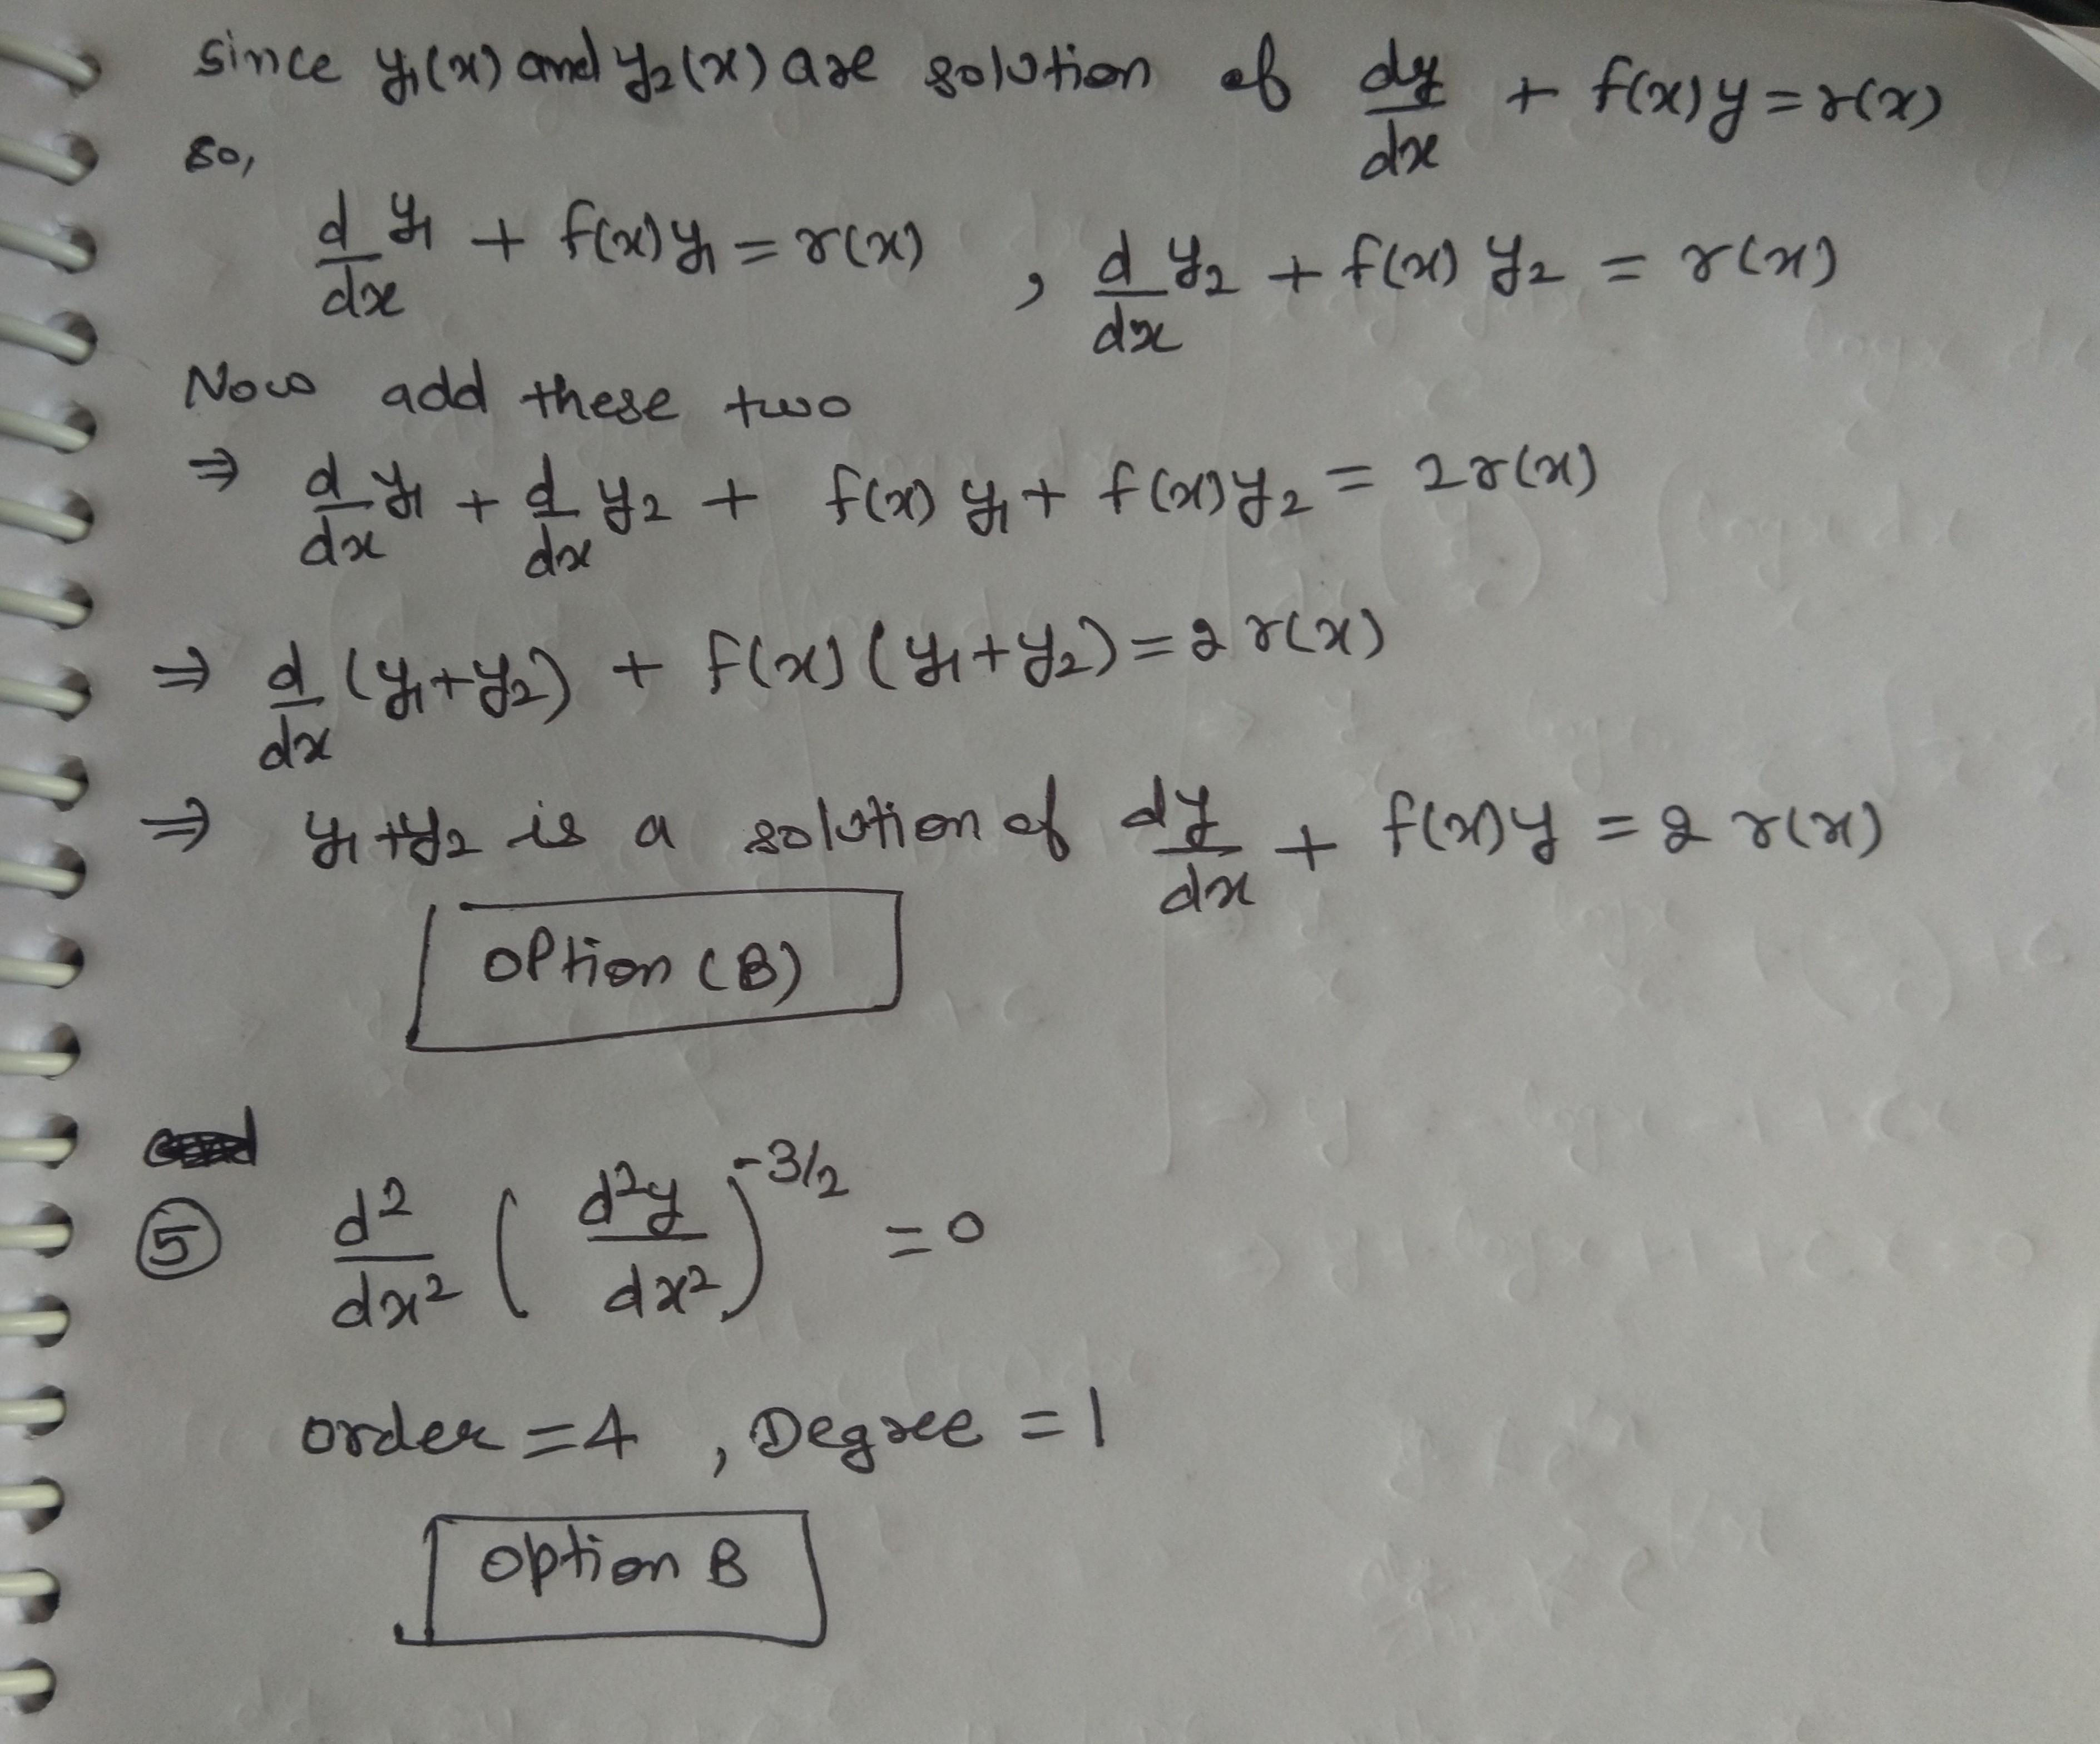 since y₁(x) and y₂(x) are solution of dy/dx + f(x)y = r(x)
so,
d/dx y₁ + f(x)y₁ = r(x) , d/dx y₂ + f(x) y₂ = r(x)
Now add these two
⇒ d/dx y₁ + d/dx y₂ + f(x) y₁ + f(x)y₂ = 2r(x)
⇒ d/dx (y₁+y₂) + f(x) (y₁+y₂) = 2 r(x)
⇒ y₁+y₂ is a solution of dy/dx + f(x)y = 2 r(x)
option (B)
⑤ d²/dx² (d²y/dx²)^-3/2 = 0
order = 4 , Degree = 1
option B